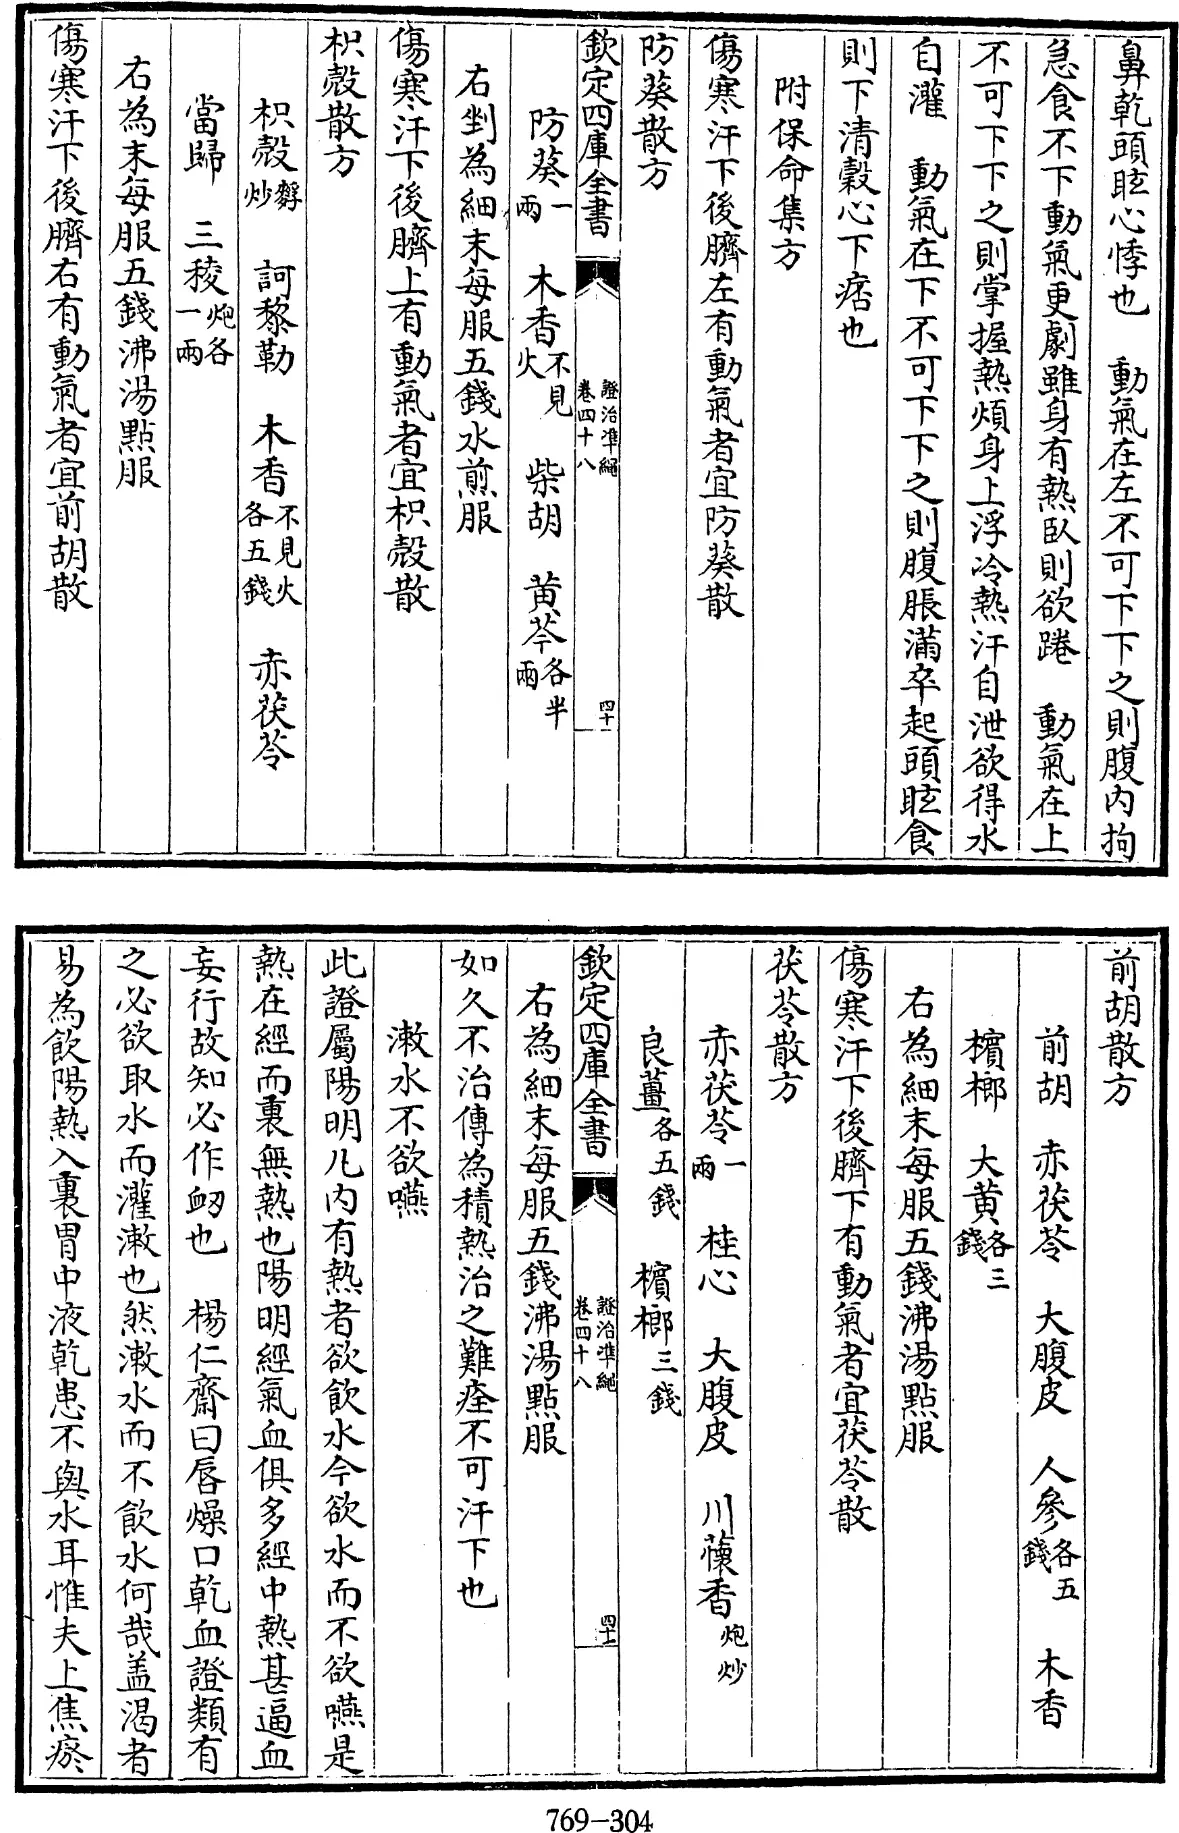 鼻乾頭眩心悸也　動氣在左不可下下之則腹内拘
急食不下動氣更劇雖身有熱臥則欲踡　動氣在上
不可下下之則掌握熱煩身上浮冷熱汗自泄欲得水
自灌　動氣在下不可下下之則腹脹滿卒起頭眩食
則下清穀心下痞也
附保命集方
傷寒汗下後臍左有動氣者宜防葵散
防葵散方
欽定四庫全書　證治準繩卷四十八　四十
防葵一兩　木香不見火　柴胡　黄芩各半兩
右剉為細末每服五錢水煎服
傷寒汗下後臍上有動氣者宜枳殼散
枳殼散方
枳殼麩炒　訶黎勒　木香不見火各五錢　赤茯苓
當歸　三稜炮各一兩
右為末每服五錢沸湯點服
傷寒汗下後臍右有動氣者宜前胡散
前胡散方
前胡　赤茯苓　大腹皮　人參各五錢　木香
檳榔　大黄各三錢
右為細末每服五錢沸湯點服
傷寒汗下後臍下有動氣者宜茯苓散
茯苓散方
赤茯苓一兩　桂心　大腹皮　川蘹香炮炒
良薑各五錢　檳榔三錢
欽定四庫全書　證治準繩卷四十八　四十一
右為細末每服五錢沸湯點服
如久不治傳為積熱治之難痊不可汗下也
漱水不欲嚥
此證屬陽明凡内有熱者欲飲水今欲水而不欲嚥是
熱在經而裏無熱也陽明經氣血俱多經中熱甚逼血
妄行故知必作衂也　楊仁齋曰唇燥口乾血證類有
之必欲取水而灌漱也然漱水而不飲水何哉盖渴者
易為飲陽熱入裏胃中液乾患不與水耳惟夫上焦瘀
769-304